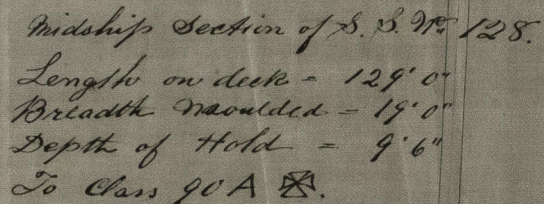 Midship Section of S. S. No. 128.
Length on deck = 129' 0"
Breadth Moulded = 19' 0"
Depth of Hold = 9' 6"
To Class 90 A ✠.